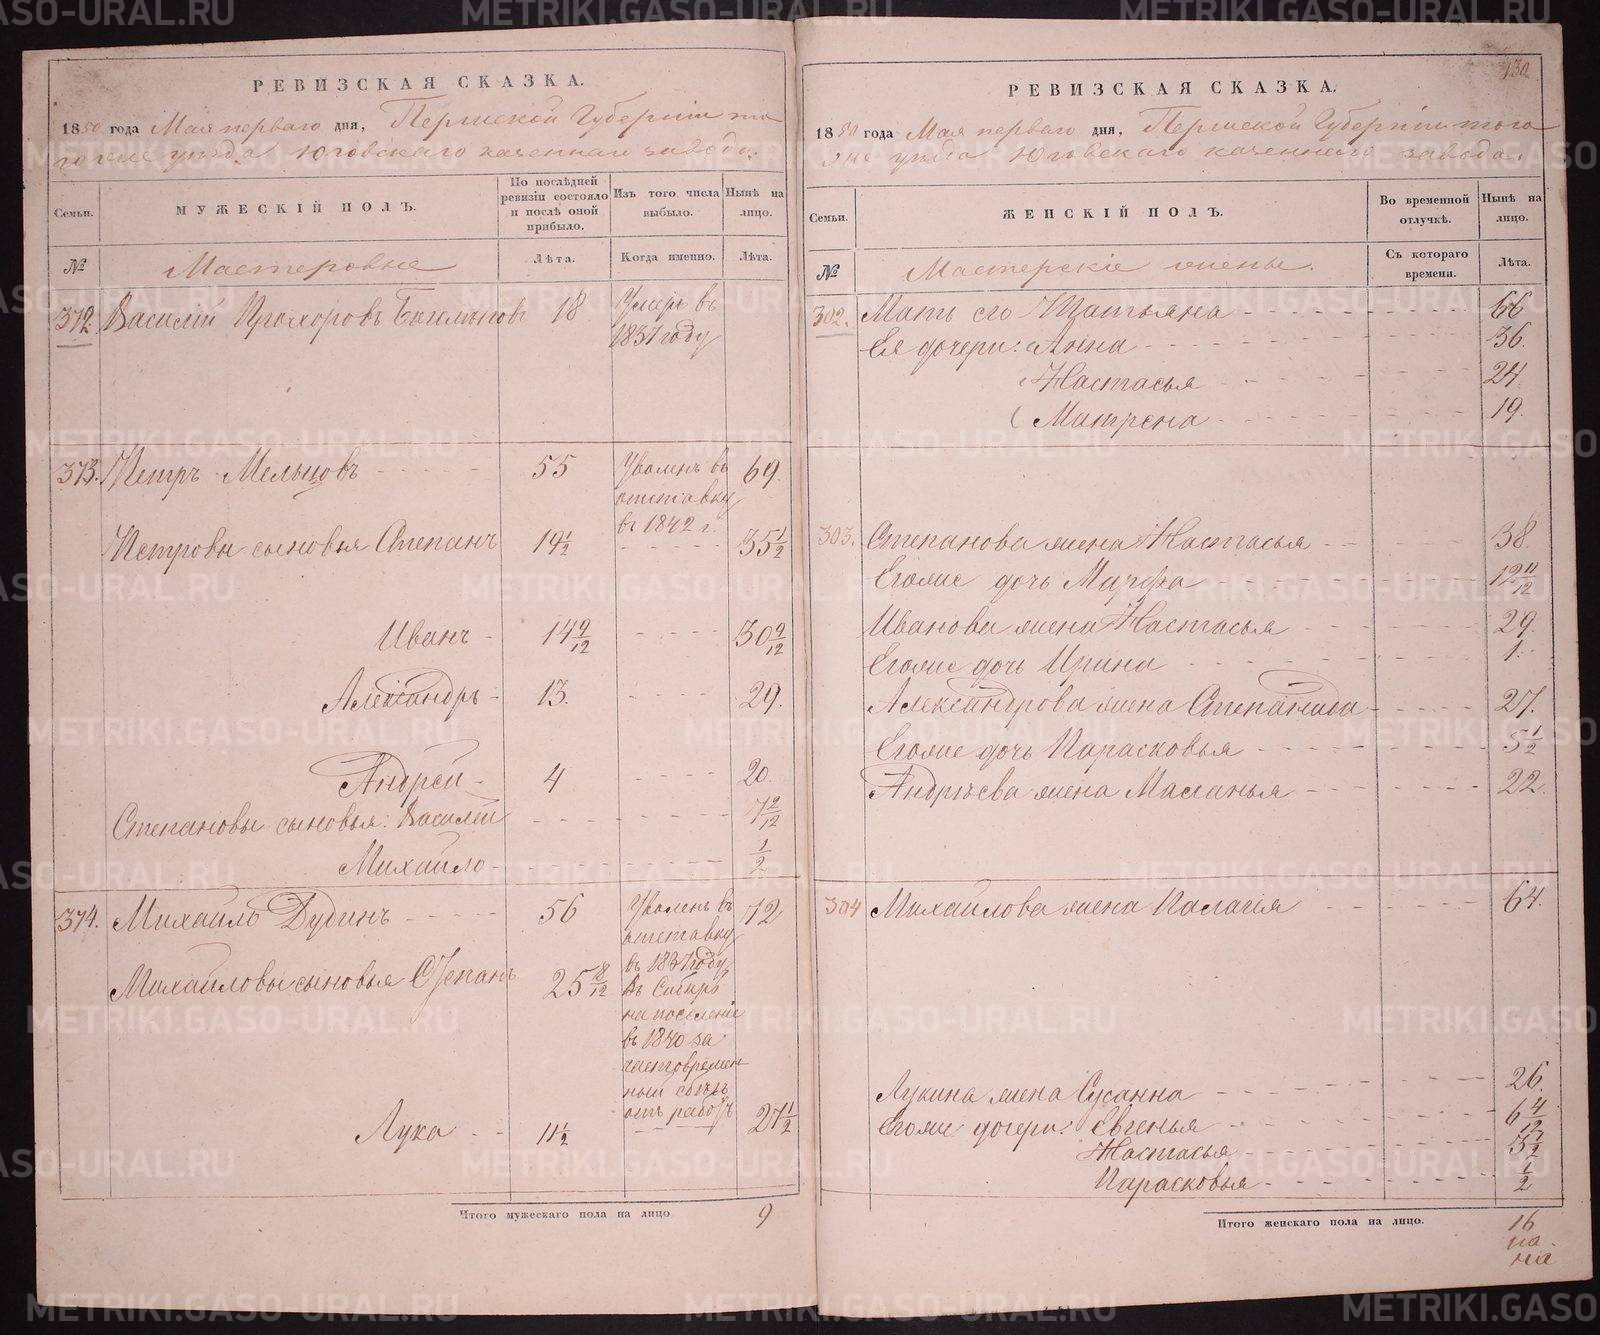 РЕВИЗСКАЯ СКАЗКА.
1850 года Мая перваго дня, Пермской Губерніи то
гоже уѣзда Юговскаго казеннаго завода.
Семьи.
МУЖЕСКІЙ ПОЛЪ.
По послѣдней ревизіи состояло и послѣ оной прибыло.
Изъ того числа выбыло.
Нынѣ на лицо.
№
Мастеровые
Лѣта.
Когда именно.
Лѣта.
372 Василій Прохоровъ 18 Умеръ въ
1837 году
373. Петръ Мельцовъ 55 Уволенъ въ 69
отставку
въ 1842 г.
Петровы сыновья Степанъ 19 1/2 35 1/2
Иванъ 14 9/12 30 9/12
Александръ 13. 29.
Андрей 4 20.
Степановы сыновья: Василій 7 2/12
Михайло 1/2
374. Михайло Дудинъ 56 Уволенъ въ 72
отставку
въ 1837 году
Михайловы сыновья Степанъ 25 8/12 Въ Сибирь
на поселеніе
въ 1840 за
частовремен
ный
отъ работъ
Лука 11 1/2 27 1/2
Итого мужескаго пола на лицо 9
130
РЕВИЗСКАЯ СКАЗКА.
1850 года Мая перваго дня, Пермской Губерніи того
же уѣзда Юговскаго казеннаго завода.
Семьи.
ЖЕНСКІЙ ПОЛЪ.
Во временной отлучкѣ.
Нынѣ на лицо.
№
Мастерскіе жены.
Съ котораго времени.
Лѣта.
302. Мать его Татьяна 66
Ея дочери: Анна 36.
Настасья 24.
Матрена 19.
303. Степанова жена Настасья 38.
Егоже дочь Марфа 12 11/12
Иванова жена Настасья 29.
Егоже дочь Ирина 1.
Александрова жена Степанида 27.
Егоже дочь Парасковья 5 1/2
Андрѣева жена Маланья 22.
304 Михайлова жена Палагья 64.
Лукина жена Сусанна 26.
Егоже дочери: Евгенья 6 4/12
Настасья 3 1/2
Парасковья 1/2
Итого женскаго пола на лицо. 16
METRIKI.GASO-URAL.RU